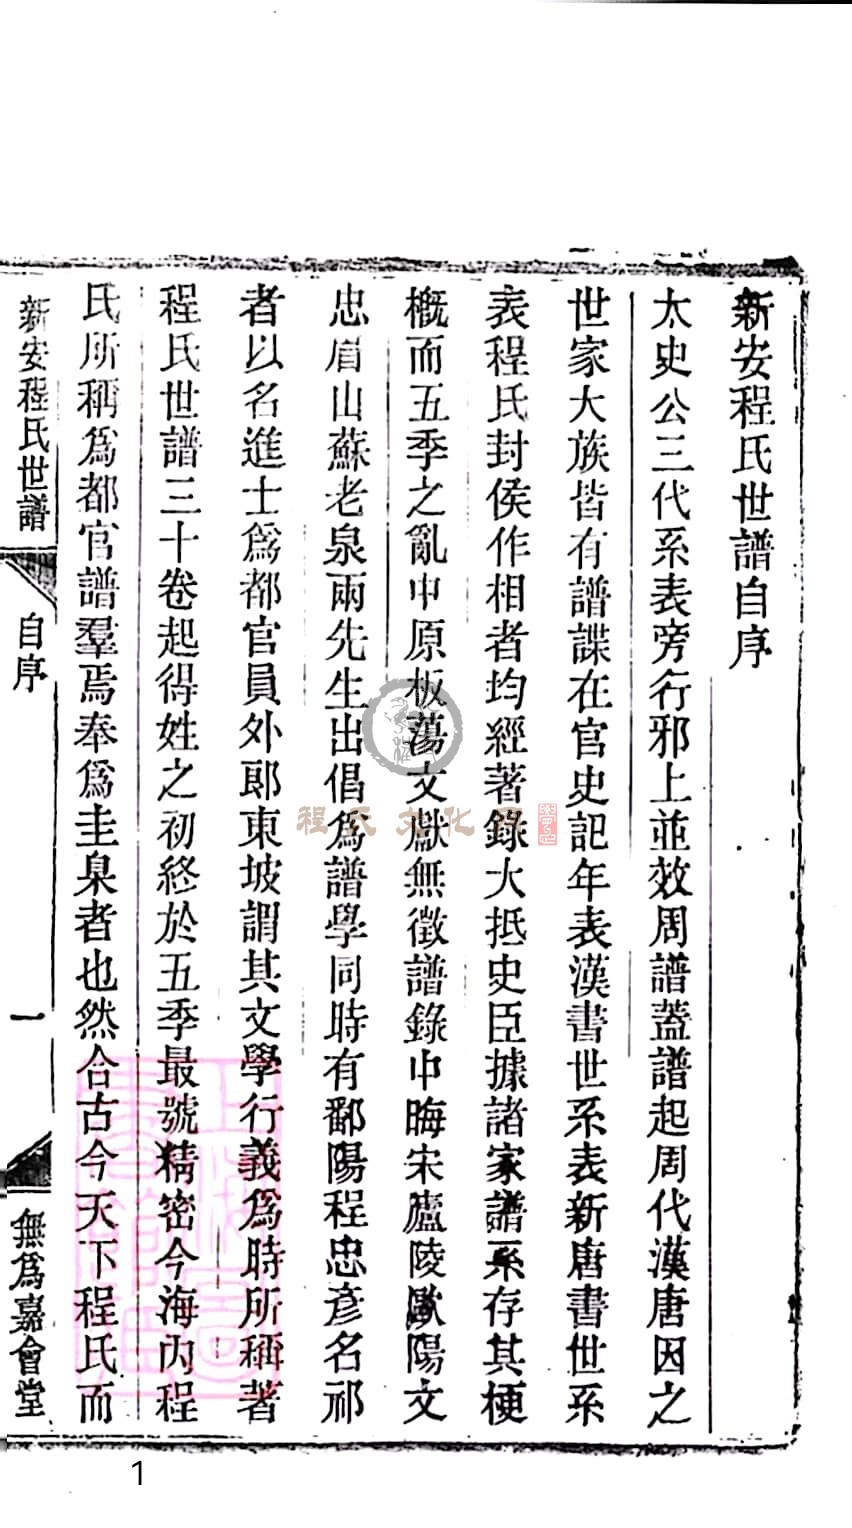 新安程氏世譜自序
太史公三代系表旁行邪上並效周譜蓋譜起周代漢唐因之
世家大族皆有譜諜在官史記年表漢書世系表新唐書世系
表程氏封侯作相者均經著錄大抵史臣據諸家譜系存其梗
概而五季之亂中原板蕩文獻無徵譜錄中晦宋廬陵歐陽文
忠眉山蘇老泉兩先生出倡爲譜學同時有鄱陽程忠彥名祁
者以名進士爲都官員外郎東坡謂其文學行義爲時所稱著
程氏世譜三十卷起得姓之初終於五季最號精密今海內程
氏所稱爲都官譜羣焉奉爲圭臬者也然合古今天下程氏而
新安程氏世譜
自序
一
無爲嘉會堂
程氏文化
1